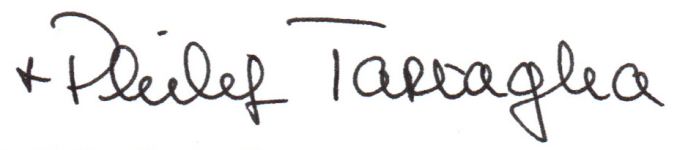 + Philip Tartaglia